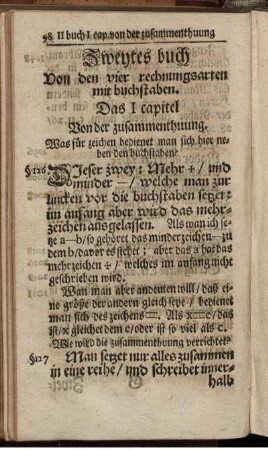 98 II buch I cap. von der zusammenthuung
Zweytes buch
Von den vier rechnungsarten
mit buchstaben.
Das I capitel
Von der zusammenthuung.
Was für zeichen bedienet man sich hier ne-
ben den buchstaben?
§126 Dieser zwey: Mehr +/ und
minder —/ welche man zur
lincken vor die buchstaben setzet:
im anfang aber wird das mehr-
zeichen ausgelassen. Als wan ich se-
tze a—b/ so gehöret das minderzeichen—zu
dem b/ davor es stehet; aber das a hat das
mehrzeichen +/ welches im anfang nicht
geschrieben wird.
Wan man aber andeuten will/ daß ei-
ne größe der andern gleich seye/ bedienet
man sich des zeichens=. Als x=c/ das
ist/ x gleichet dem c/ oder ist so viel als c.
Wie wird die zusammenthuung verrichtet?
§127 Man setzet nur alles zusammen
in eine reihe/ und schreibet inner-
halb